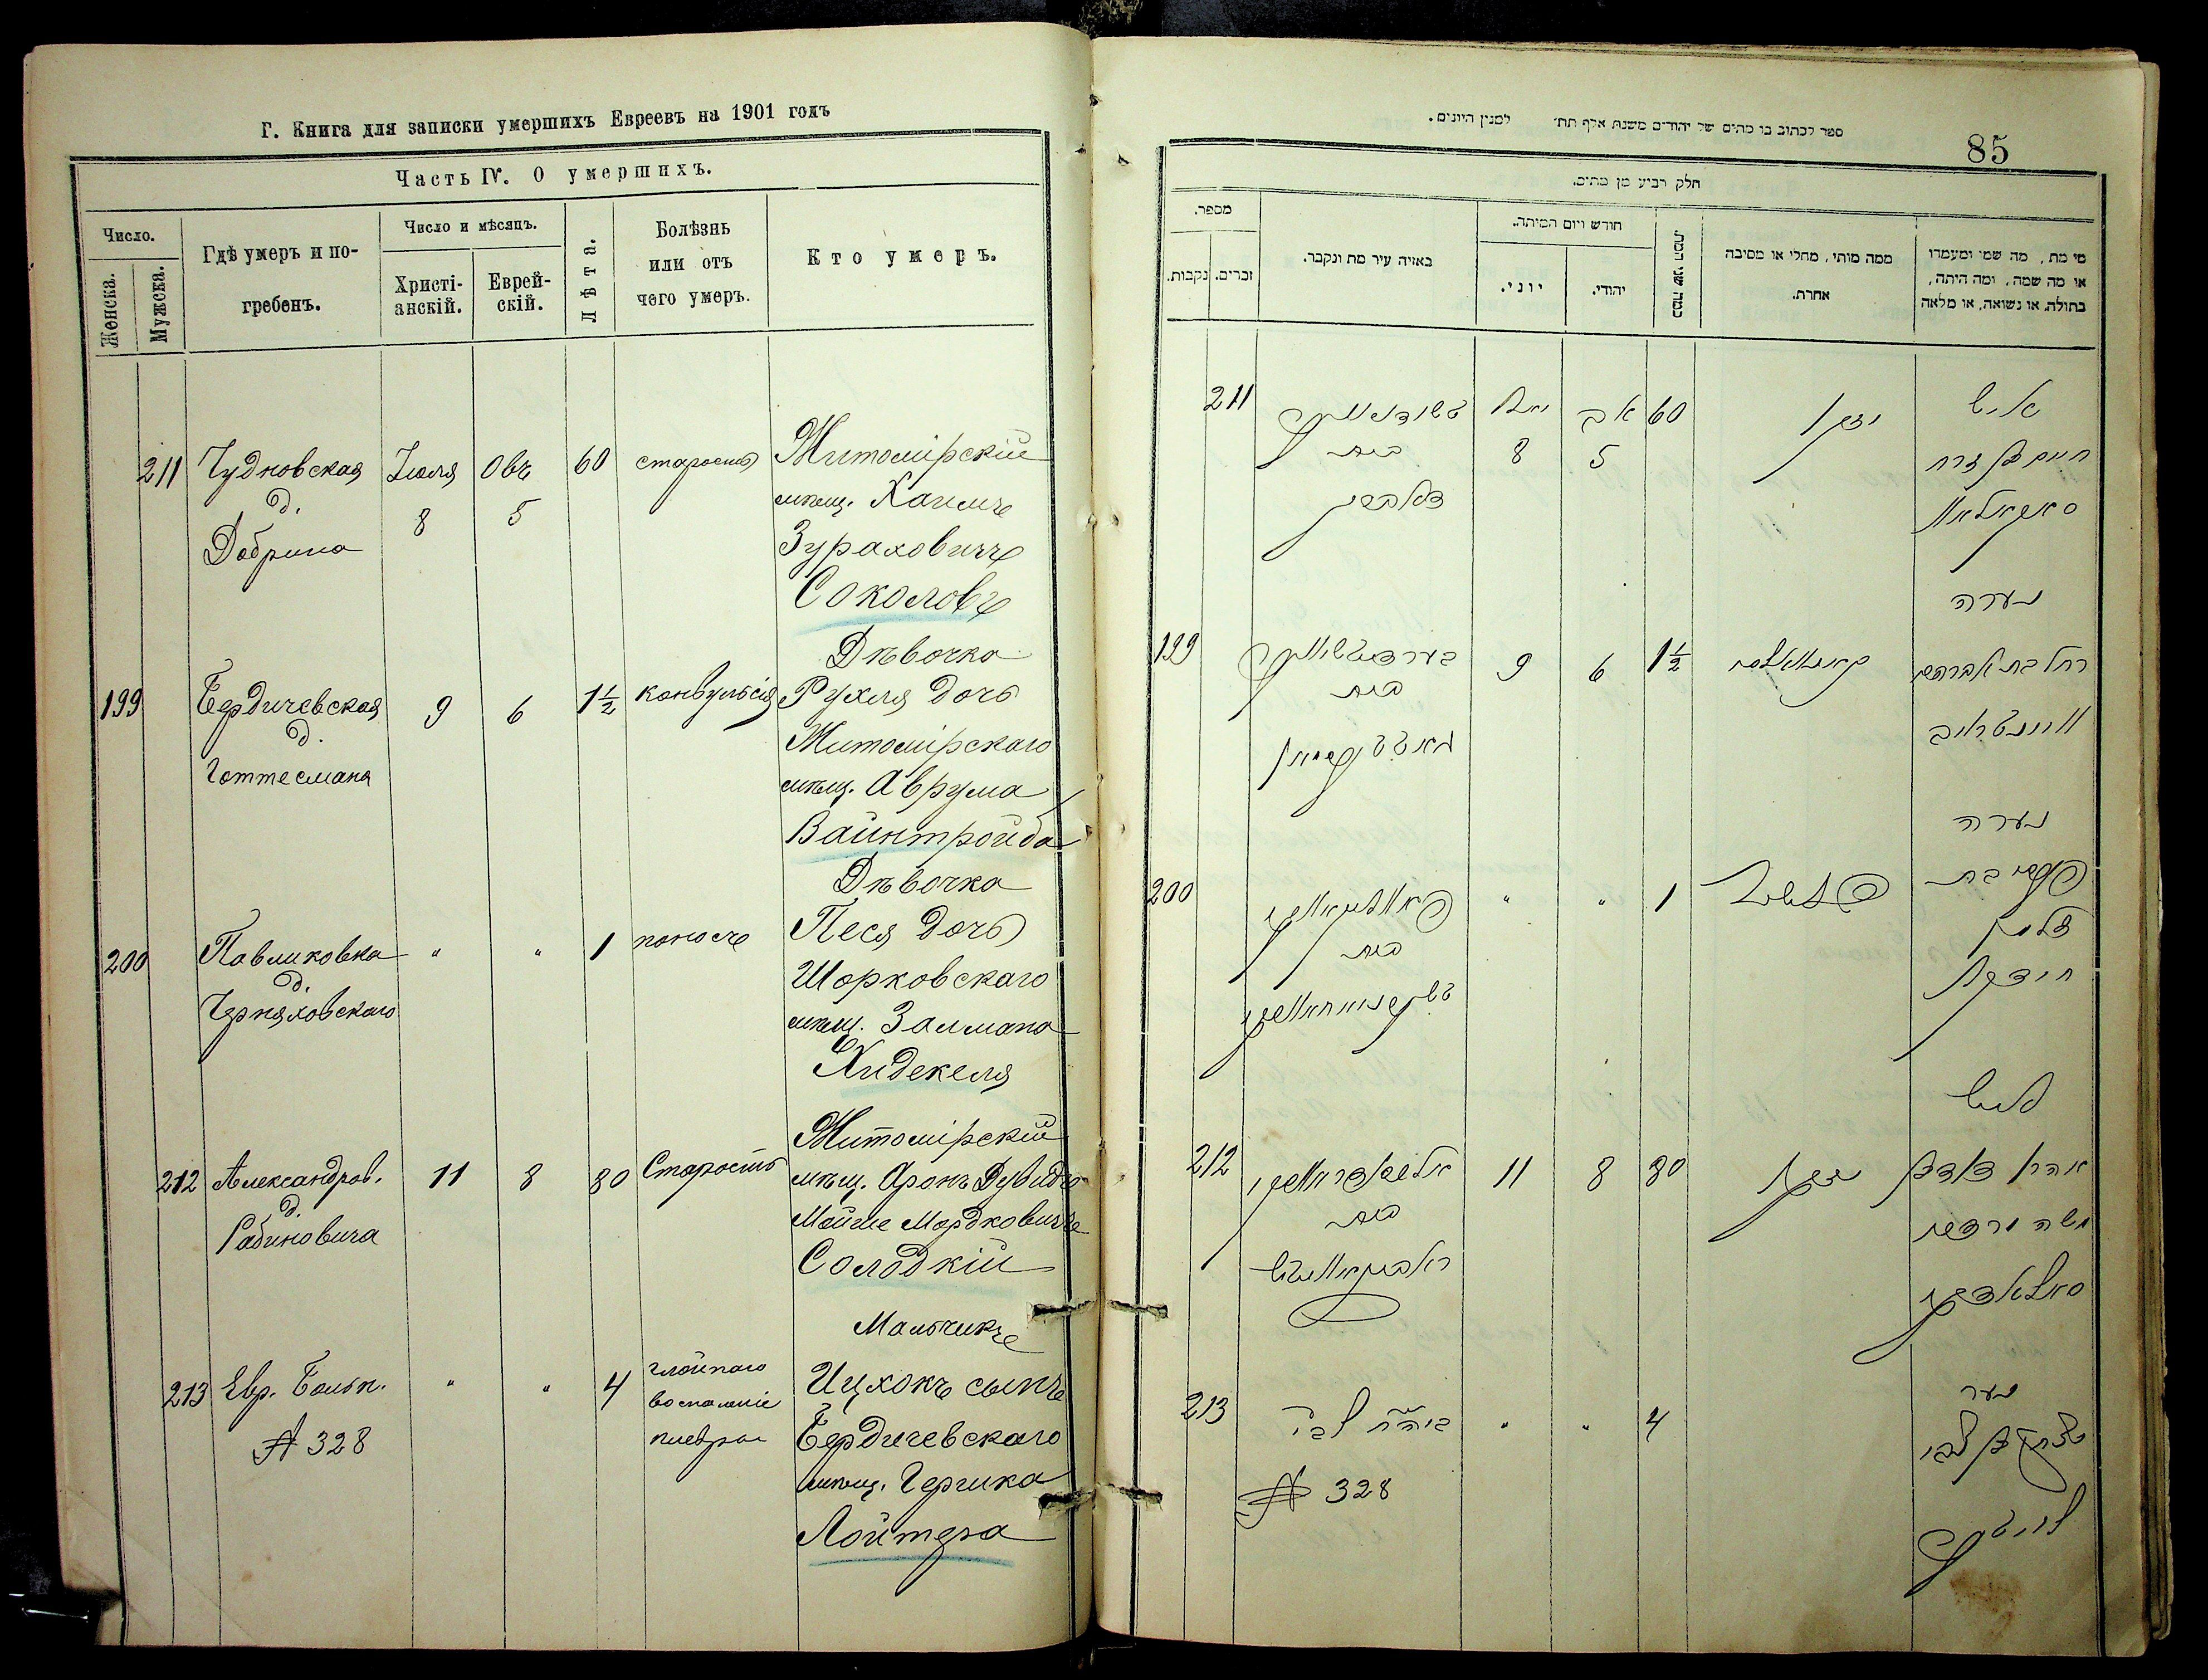 Г. Книга для записки умершихъ Евреевъ на 1901 годъ
Часть IV. О умершихъ.
Число.
Женска.
Мужска.
Гдѣ умеръ и по-
гребенъ.
Число и мѣсяцъ.
Христі-
анскій.
Еврей-
скій.
Лѣта.
Болѣзнь
или отъ
чего умеръ.
Кто умеръ.
211
Чудновская
д.
Добрина
Іюля
8
Овъ
5
60
старость
Житомірскій
мѣщ. Хаимъ
Зураховичъ
Соколовъ
199
Бердичевская
д.
Готтесмана
9
6
1½
конвульсія
Дѣвочка
Рухля дочь
Житомірскаго
мѣщ. Аврума
Вайнтройба
200
Павликовка
д.
Черняховскаго
"
"
1
поносъ
Дѣвочка
Песя дочь
Шорковскаго
мѣщ. Залмана
Хидекеля
212
Александров.
д.
Рабиновича
11
8
80
Старость
Житомірскій
мѣщ. Аронъ Дувидъ
Мойше Мордковичъ
Солодкій
213
Евр. Больн.
№ 328
"
"
4
воспаленіе
плевры
Мальчикъ
Ицхокъ сынъ
Бердичевскаго
мѣщ. Гершка
Лойтера
ספר לכתוב בו מתים של יהודים משנת אלף תת׳ למנין היונים.
85
חלק רביע מן מתים.
מספר.
נקבות.
זכרים.
באיזה עיר מת ונקבר.
חודש ויום המיתה.
יוני.
יהודי.
כמה שני המת.
ממה מותי, מחלי או מסיבה
אחרת.
מי מת, מה שמי ומעמדו
או מה שמה, ומה היתה,
בתולה, או נשואה, או מלאה
211
בית
8
אב
5
60
זקן
איש
חיים בן זרח
סאקאלאוו
199
בית
9
6
1½
נערה
רחל בת אברהם
וויינטרויב
200
בית
"
"
1
נערה
פעסי בת
זלמן
חידקל
212
בית
11
8
80
זקן
איש
אהרן דוד בן
משה מרדכי
סאלאדקי
213
№ 328
"
"
4
נער
יצחק בן צבי
לויטער